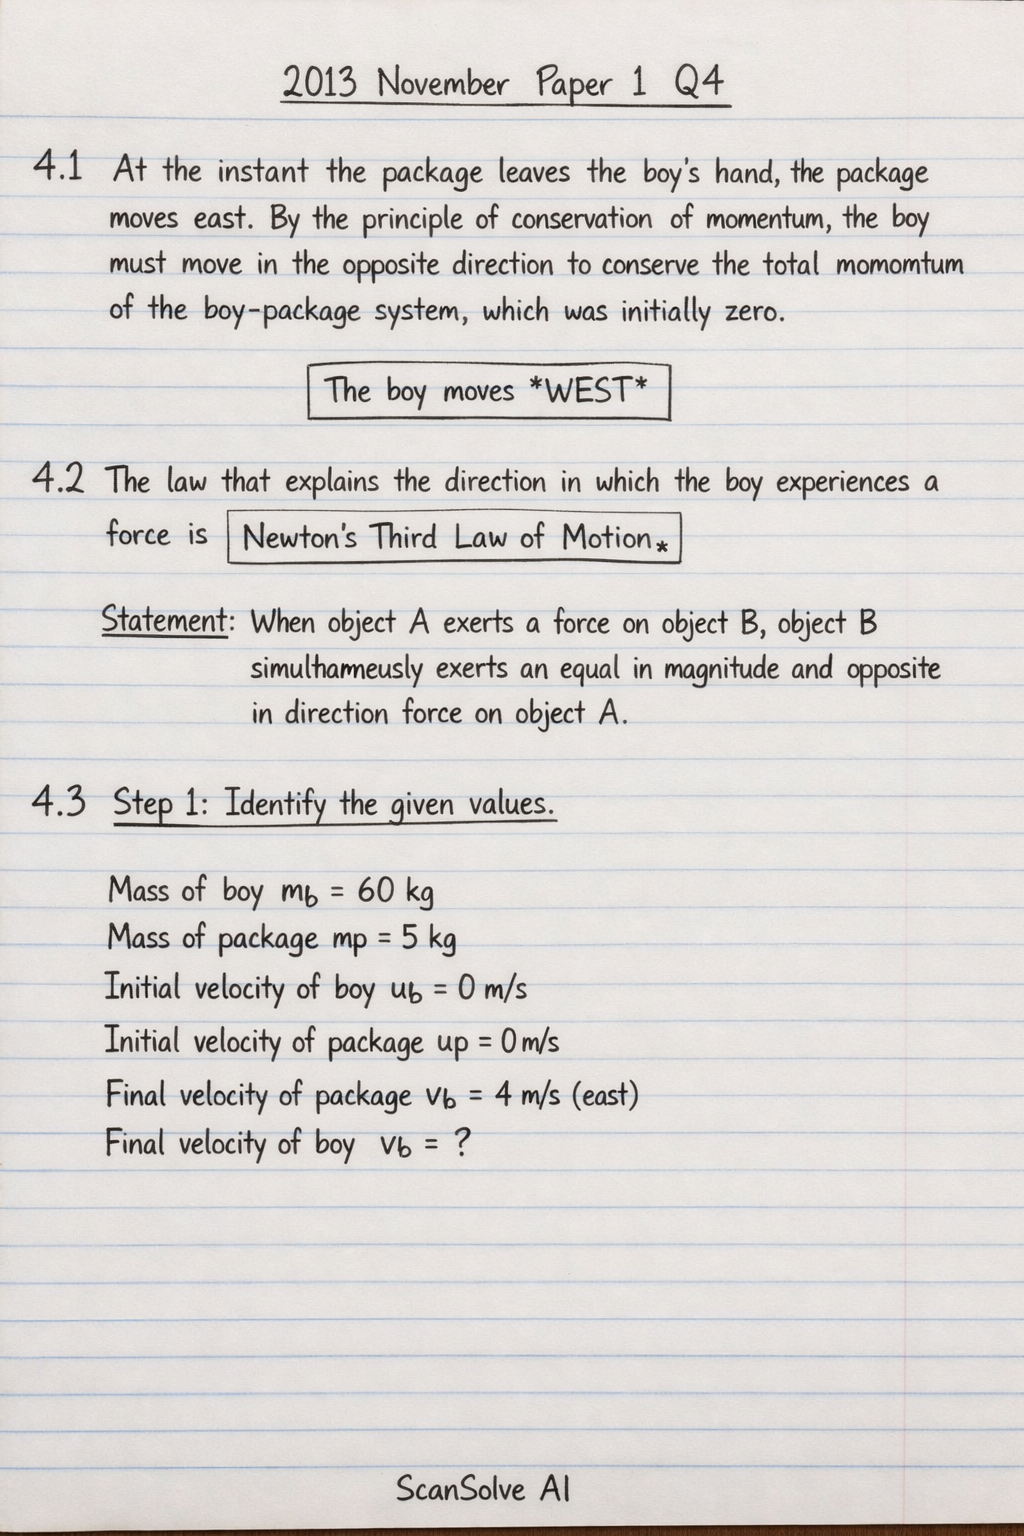 2013 November Paper 1 Q4
4.1 At the instant the package leaves the boy's hand, the package
moves east. By the principle of conservation of momentum, the boy
must move in the opposite direction to conserve the total momomtum
of the boy-package system, which was initially zero.
The boy moves *WEST*
4.2 The law that explains the direction in which the boy experiences a
force is Newton's Third Law of Motion*
Statement: When object A exerts a force on object B, object B
simulhamneusly exerts an equal in magnitude and opposite
in direction force on object A.
4.3 Step 1: Identify the given values.
Mass of boy mb = 60 kg
Mass of package mp = 5 kg
Initial velocity of boy ub = 0 m/s
Initial velocity of package up = 0 m/s
Final velocity of package vb = 4 m/s (east)
Final velocity of boy vb = ?
ScanSolve AI